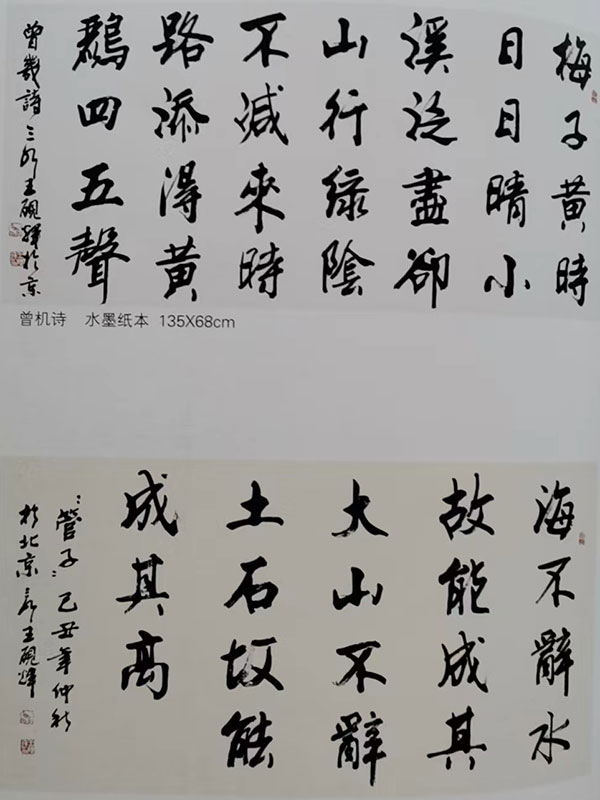 梅子黄時
日日晴小
溪泛盡卻
山行緑陰
不減來時
路添得黄
鸝四五聲
曾幾詩 三水王硯輝於京
曾机诗 水墨纸本 135X68cm
海不辭水
故能成其
大山不辭
土石故能
成其高
管子 己丑年仲秋
於北京 王硯輝